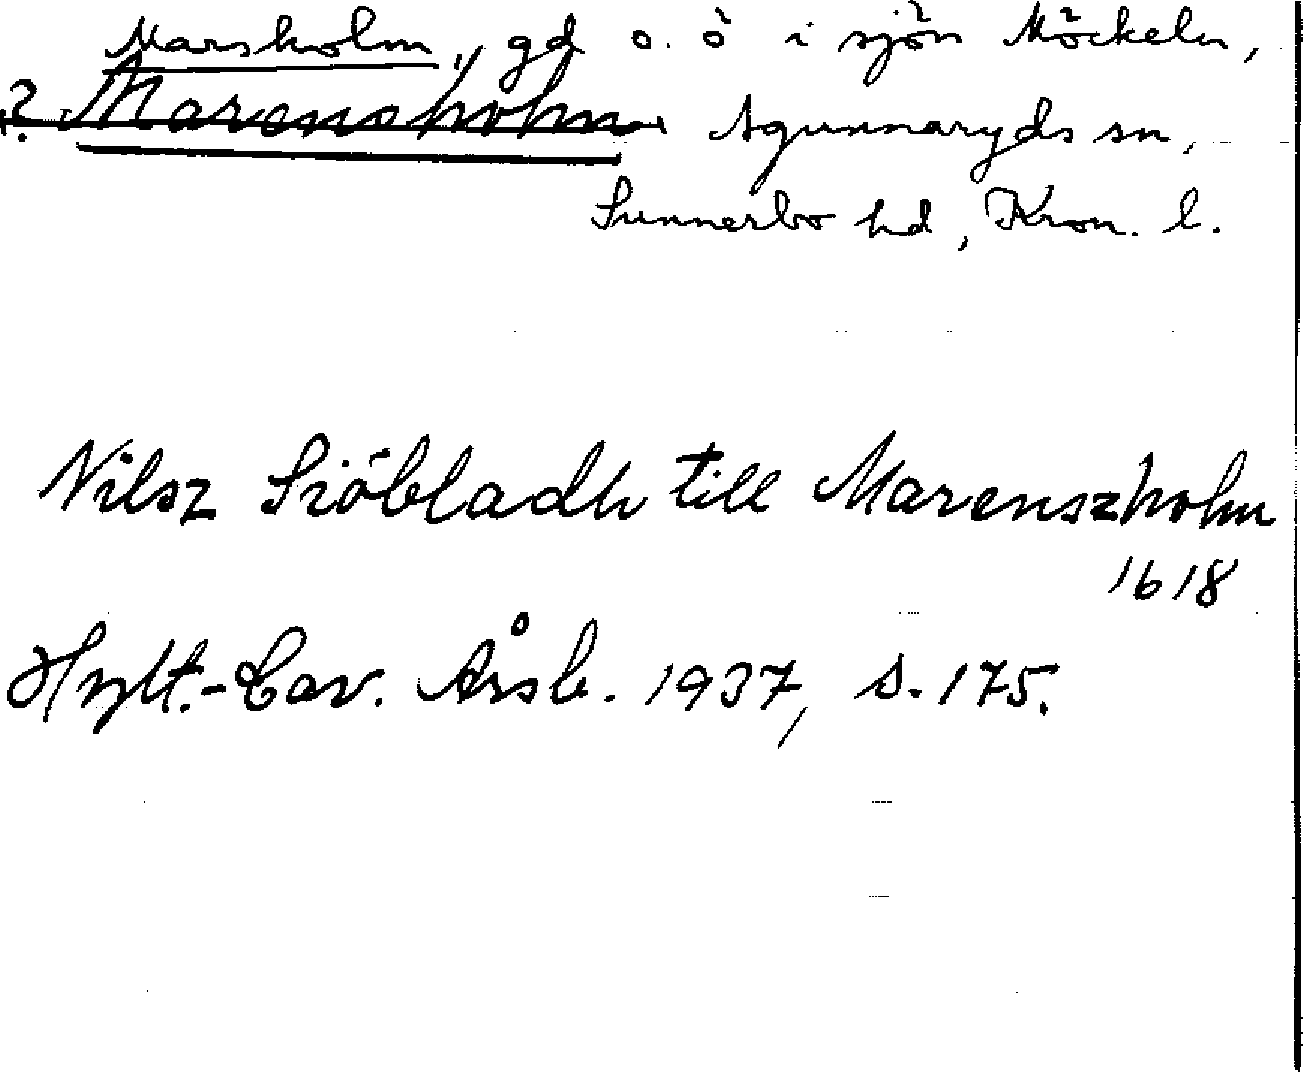 Marsholm, gd o. ö i sjön Möckeln,
? Marensholm Agunnaryds sn,
Sunnerbo hd, Kron. l.
Nilsz Siöbladh till Marenszholm
1618
Hylt.-Cav. Årsb. 1937, s. 175.